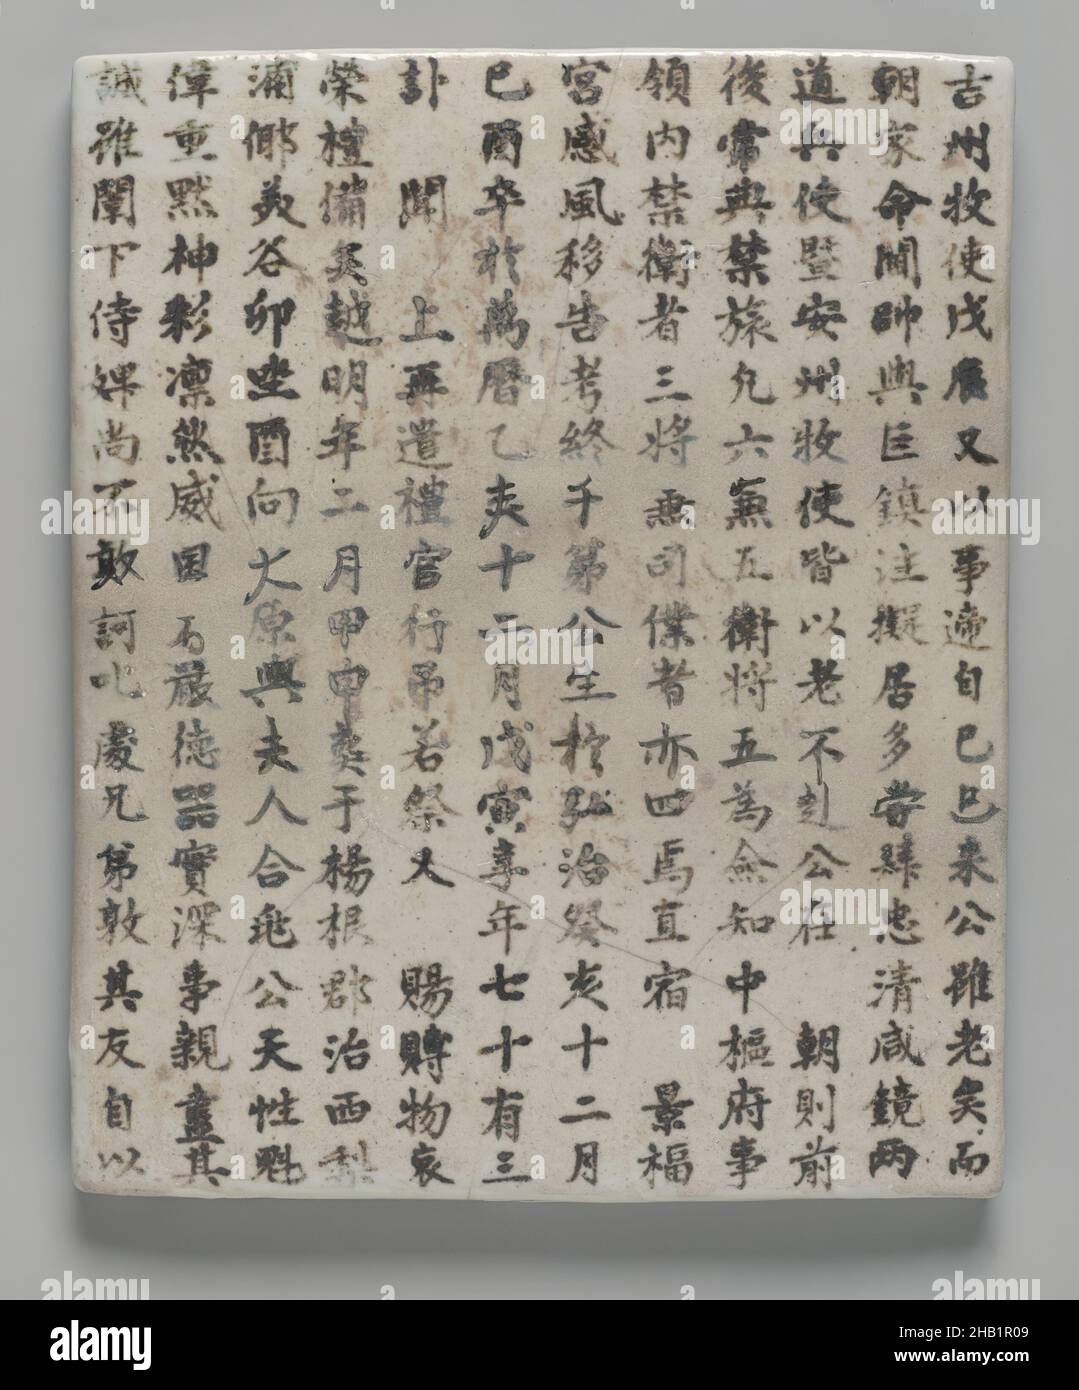 吉州牧使戊辰又以事遞自己巳來公雖老矣而
朝家命閫帥與巨鎮注擬居多嘗肄忠清咸鏡兩
道兵使暨安州牧使皆以老不赴公在 朝則前
後常與禁旅九六兼五衛將五為僉知中樞府事
領內禁衛者三將兼司僕者亦四焉直宿 景福
宮感風移告考終千第公生於弘治癸亥十二月
己酉卒於萬曆乙亥十二月戊寅享年七十有三
訃 聞 上再遣禮官行吊若祭又 賜賻物哀
榮禮備矣越明年二月甲申葬于楊根郡治西梨
浦鄉美谷卯坐酉向大原與夫人合兆公天性魁
偉重默神彩凜然威固而嚴德器實深事親盡其
誠雖閨下侍婢尚不敢訶叱處兄弟敦其友自以
alamy
Image ID: 2HB1R09
www.alamy.com